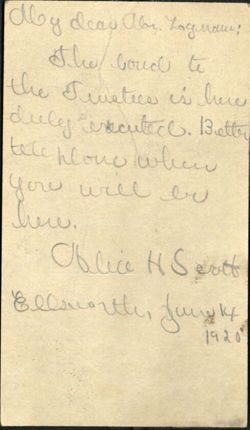 My dear Mr. Logman:
The bond to
the Trustees is here
duly executed. Better
telephone when
you will be
here.
Alice H Scott
Ellsworth, June 14
1920